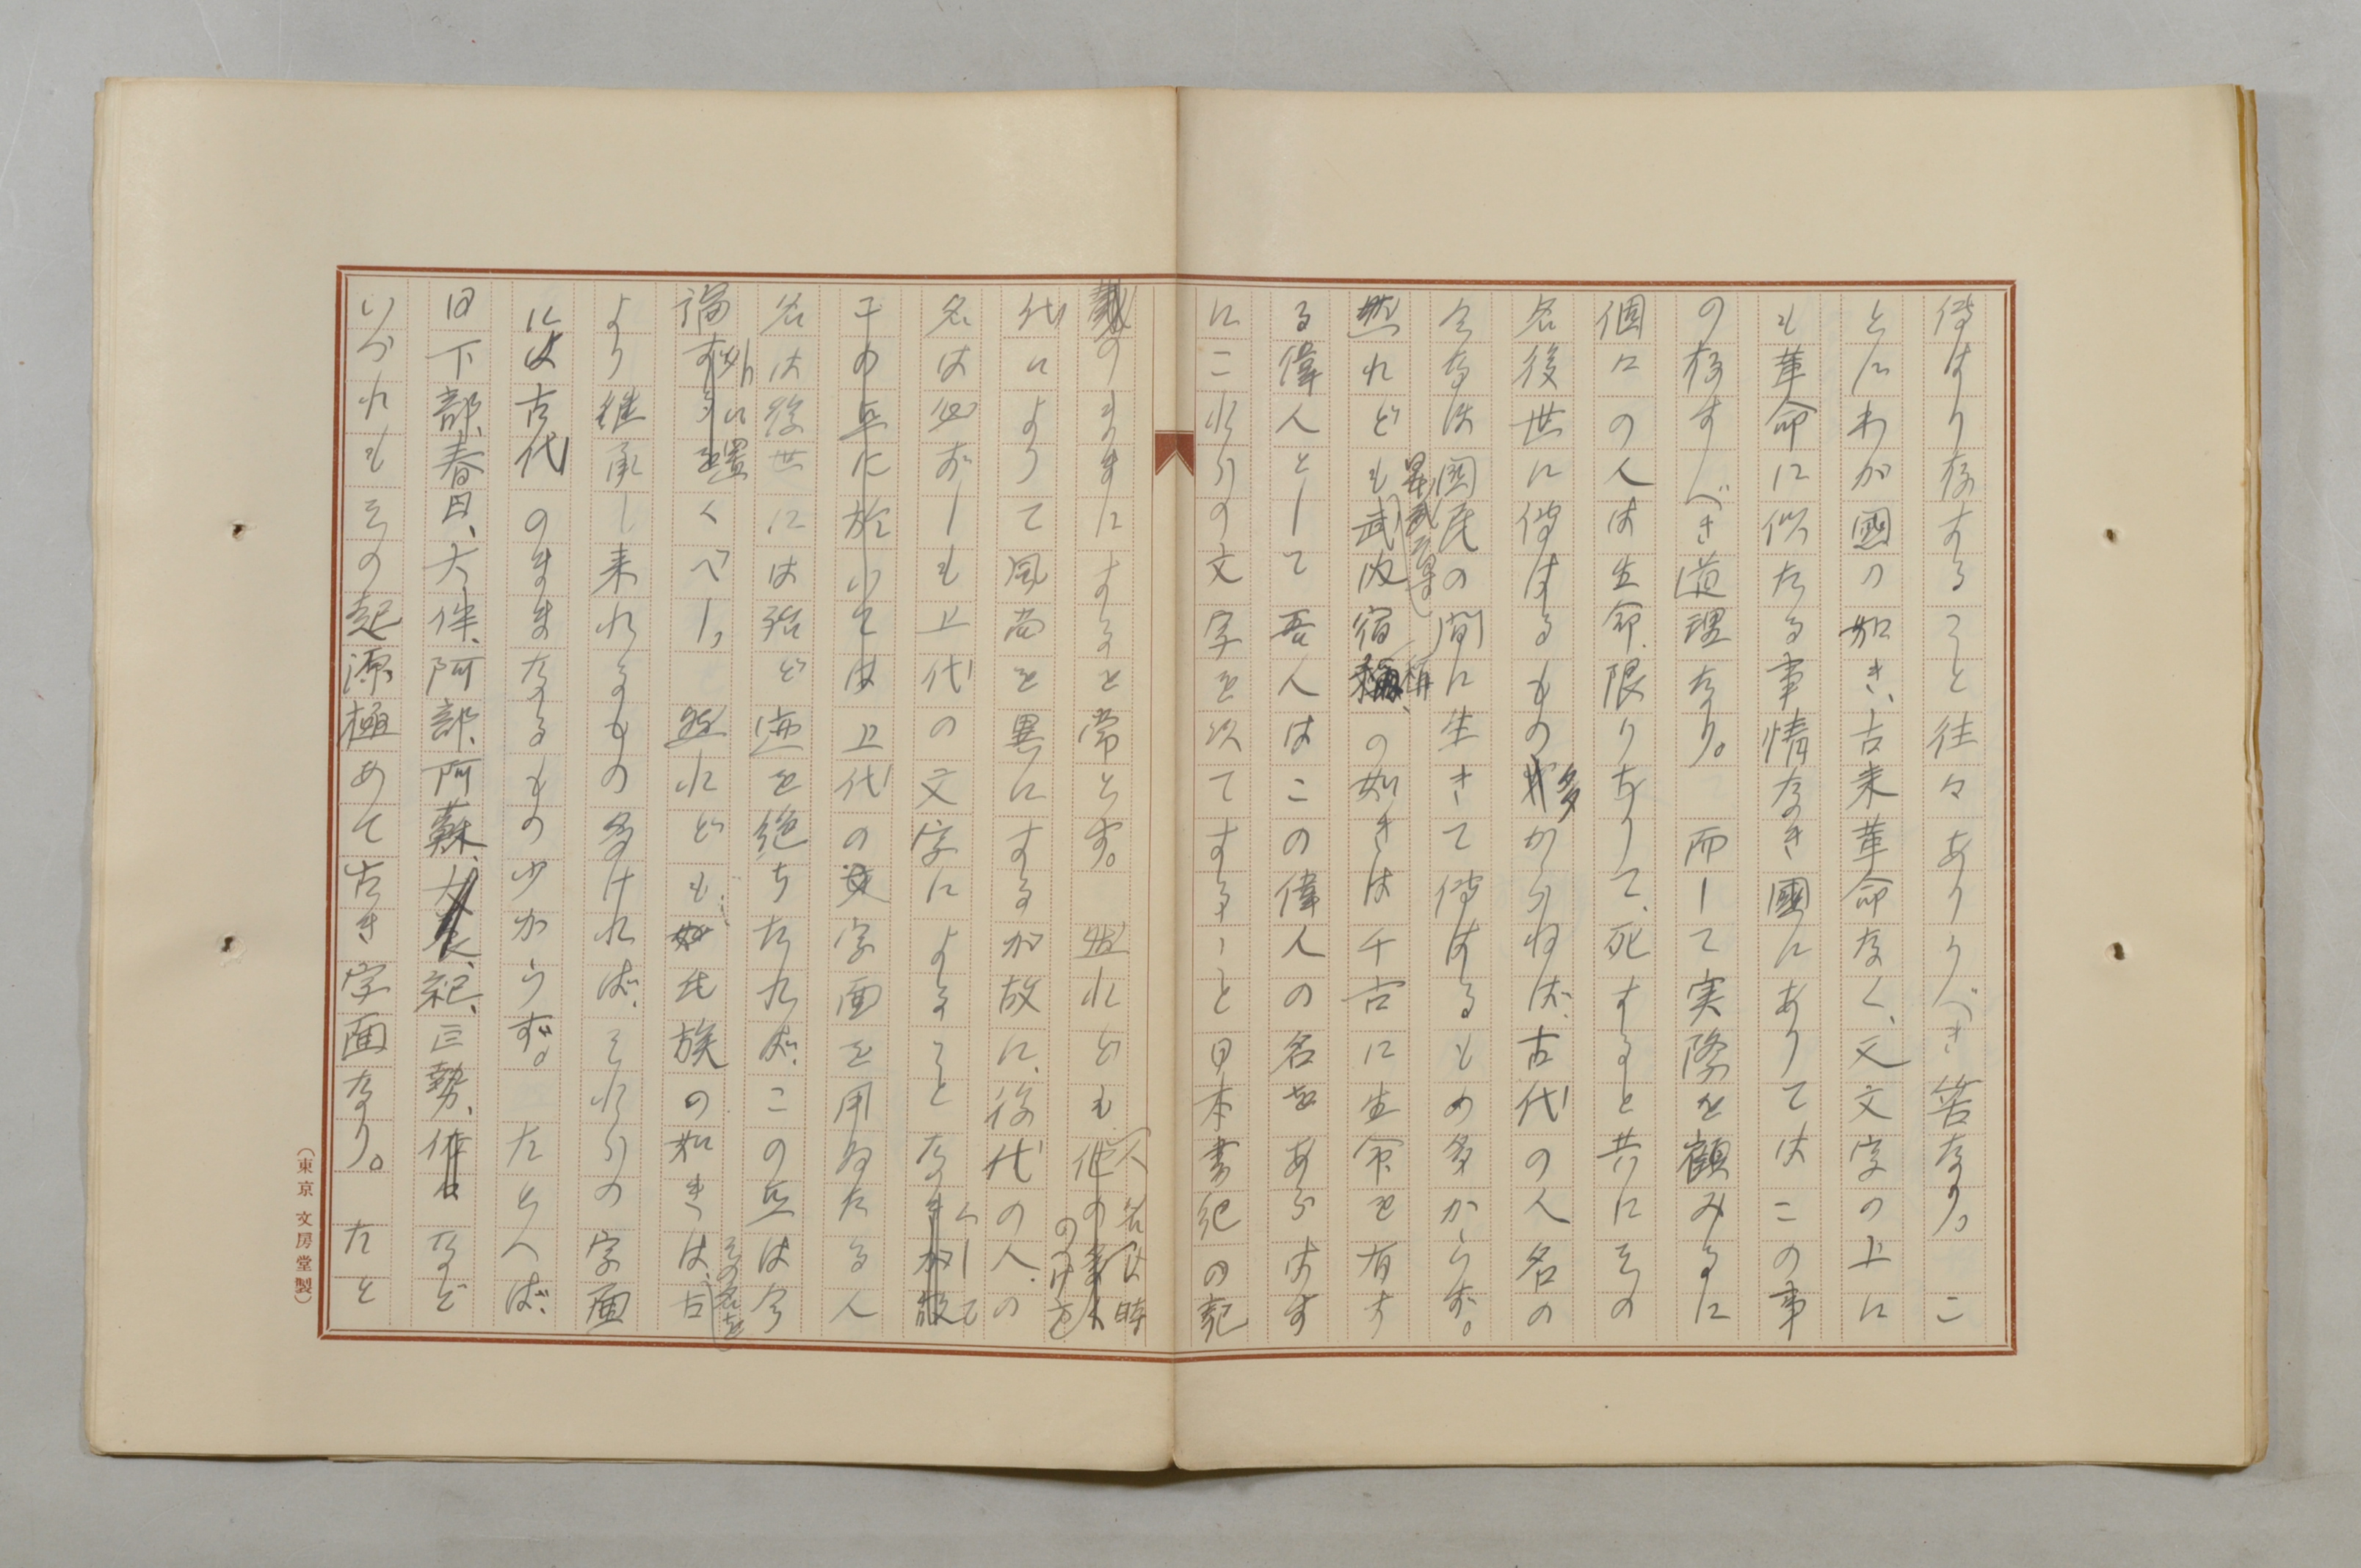 傳はり存すること往々ありうべき筈なり。こ
とにわが國の如き、古来革命なく、文文字の上に
も革命に似たる事情なき國にありてはこの事
の存すべき道理なり。而して実際を顧みるに
個々の人は生命限りありて、死すると共にその
名後世に傳はるもの多からねば、古代の人名の
今なほ國民の間に生きて傳はるもの多からず。
然れども日本武尊、武内宿禰の如きは千古に生命を有す
る偉人として吾人はこの偉人の名をあらはす
にこれらの文字を以てすること日本書紀の記
載のまゝにするを常とす。然れども、人名は時
代によりて風尚を異にするが故に、後代の人の
名は必ずしも上代の文字によることなくして
上代の文字面を用ゐたる人
名は後世には殆ど迹を絶ちたれば、この点は今
論外に置くべし。然れども氏族の如きは、その名を古
より継承し来れるもの多ければ、それらの字面
には古代のままなるもの少からず。たとへば、
日下部、春日、大伴、阿部、阿蘇、紀、巨勢、など
いづれもその起源極めて古き字面なり。たと
(東京 文房堂製)